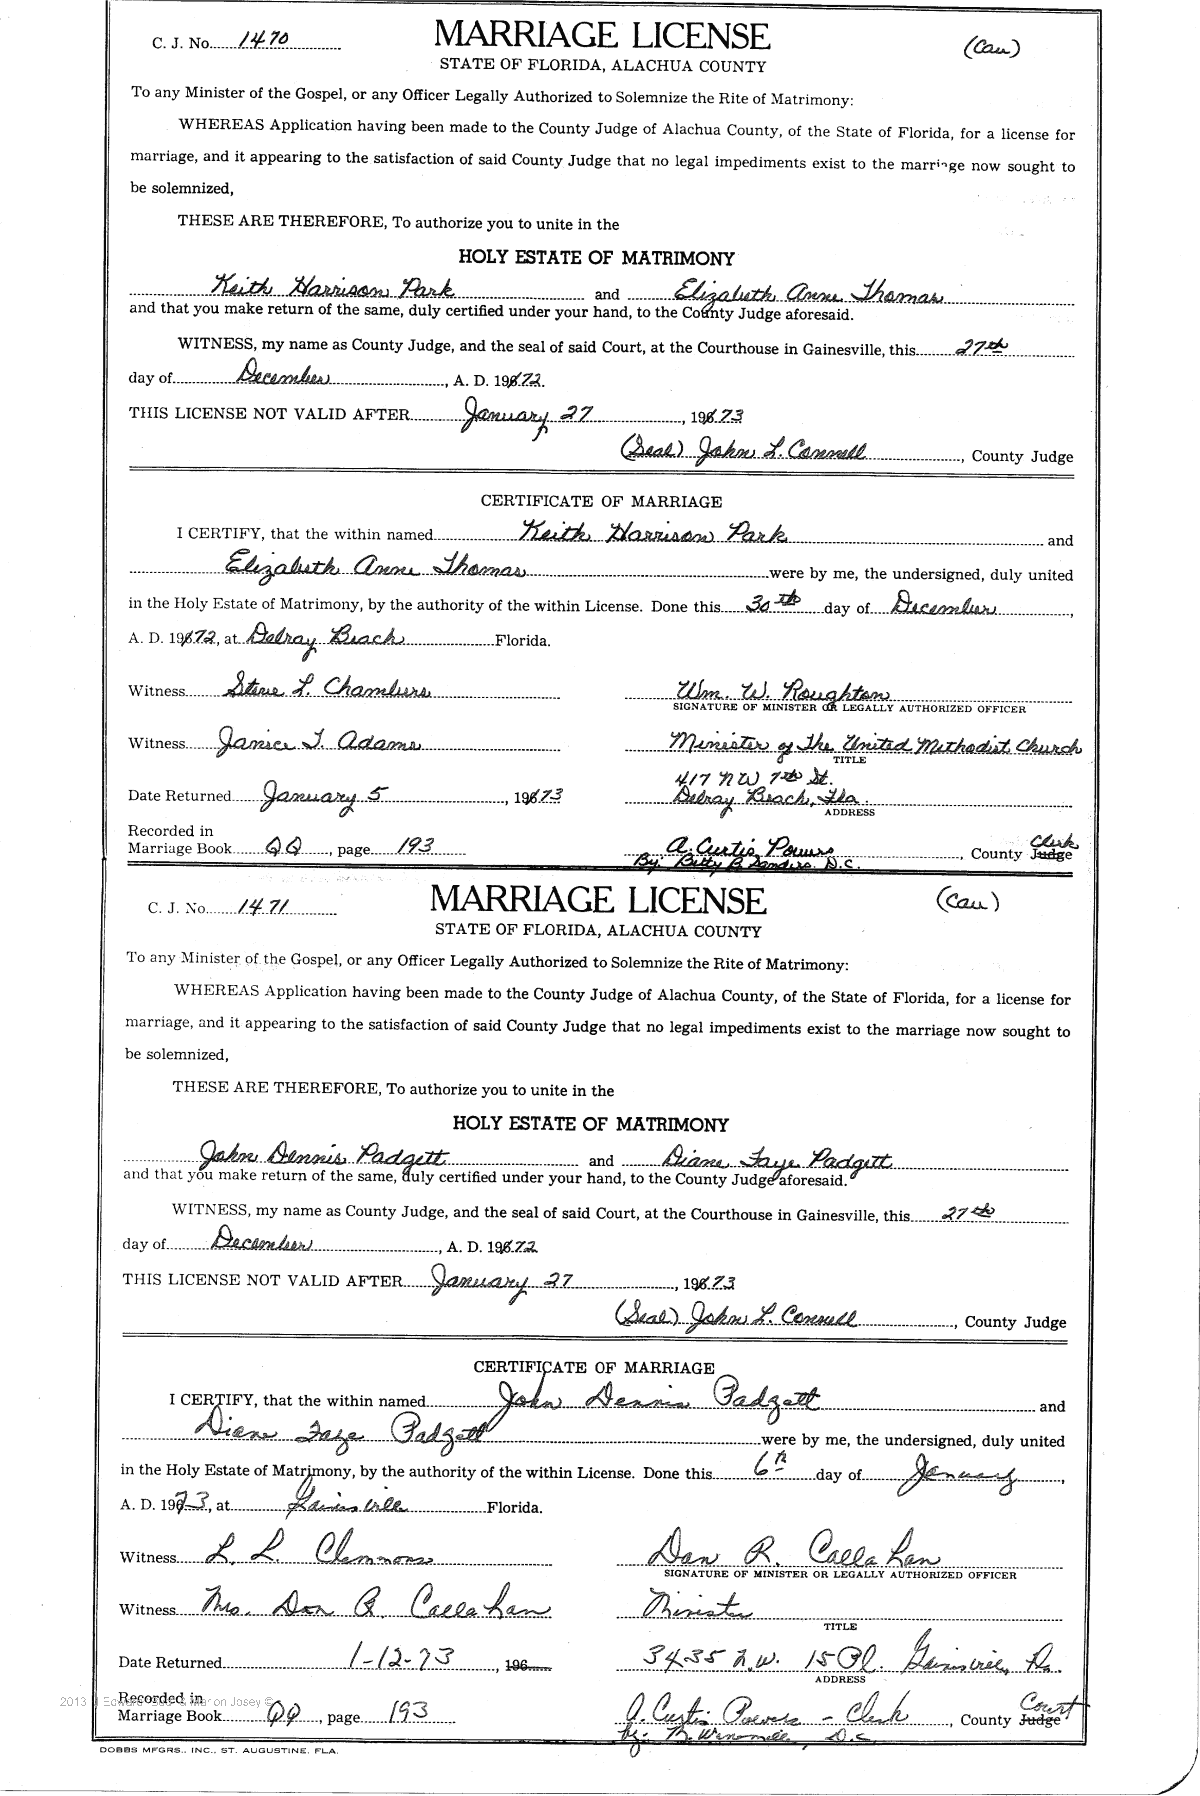 C. J. No. 1470 MARRIAGE LICENSE (Cau)
STATE OF FLORIDA, ALACHUA COUNTY
To any Minister of the Gospel, or any Officer Legally Authorized to Solemnize the Rite of Matrimony:
WHEREAS Application having been made to the County Judge of Alachua County, of the State of Florida, for a license for
marriage, and it appearing to the satisfaction of said County Judge that no legal impediments exist to the marriage now sought to
be solemnized,
THESE ARE THEREFORE, To authorize you to unite in the
HOLY ESTATE OF MATRIMONY
Keith Harrison Park and Elizabeth Anne Thomas
and that you make return of the same, duly certified under your hand, to the County Judge aforesaid.
WITNESS, my name as County Judge, and the seal of said Court, at the Courthouse in Gainesville, this 27th
day of December, A. D. 1972.
THIS LICENSE NOT VALID AFTER January 27, 1973
(Seal) John L. Connell, County Judge
CERTIFICATE OF MARRIAGE
I CERTIFY, that the within named Keith Harrison Park and
Elizabeth Anne Thomas were by me, the undersigned, duly united
in the Holy Estate of Matrimony, by the authority of the within License. Done this 30th day of December,
A. D. 1972, at Delray Beach Florida.
Witness Steve L. Chambers Wm. W. Roughton
SIGNATURE OF MINISTER OR LEGALLY AUTHORIZED OFFICER
Witness Janice T. Adams Minister of The United Methodist Church
TITLE
417 NW 7th St.
Date Returned January 5, 1973 Delray Beach, Fla.
ADDRESS
Recorded in
Marriage Book QQ, page 193 A. Curtis Powers, County Judge Clerk
By: Betty B. Sanders, D.C.
C. J. No. 1471 MARRIAGE LICENSE (Cau)
STATE OF FLORIDA, ALACHUA COUNTY
To any Minister of the Gospel, or any Officer Legally Authorized to Solemnize the Rite of Matrimony:
WHEREAS Application having been made to the County Judge of Alachua County, of the State of Florida, for a license for
marriage, and it appearing to the satisfaction of said County Judge that no legal impediments exist to the marriage now sought to
be solemnized,
THESE ARE THEREFORE, To authorize you to unite in the
HOLY ESTATE OF MATRIMONY
John Dennis Padgett and Diane Faye Padgett
and that you make return of the same, duly certified under your hand, to the County Judge aforesaid.
WITNESS, my name as County Judge, and the seal of said Court, at the Courthouse in Gainesville, this 27th
day of December, A. D. 1972
THIS LICENSE NOT VALID AFTER January 27, 1973
(Seal) John L. Connell, County Judge
CERTIFICATE OF MARRIAGE
I CERTIFY, that the within named John Dennis Padgett and
Diane Faye Padgett were by me, the undersigned, duly united
in the Holy Estate of Matrimony, by the authority of the within License. Done this 6th day of January,
A. D. 1973, at Gainsville Florida.
Witness L. L. Clemmons Dan R. Callahan
SIGNATURE OF MINISTER OR LEGALLY AUTHORIZED OFFICER
Witness Mrs. Dan R. Callahan Minister
TITLE
Date Returned 1-12-73, 196 3435 N.W. 15 Pl. Gainsville, Fla.
ADDRESS
Recorded in
Marriage Book QQ, page 193 A. Curtis Powers - Clerk, County Judge Court
by: D.C.
DOBBS MFGRS., INC., ST. AUGUSTINE, FLA.
2013 Josey ©